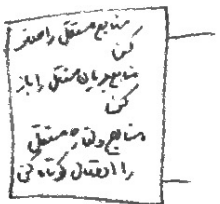 منابع مستقل را صفر
کن
منابع جریان مستقل را باز
کن
منابع ولتاژ مستقل
را اتصال کوتاه کن